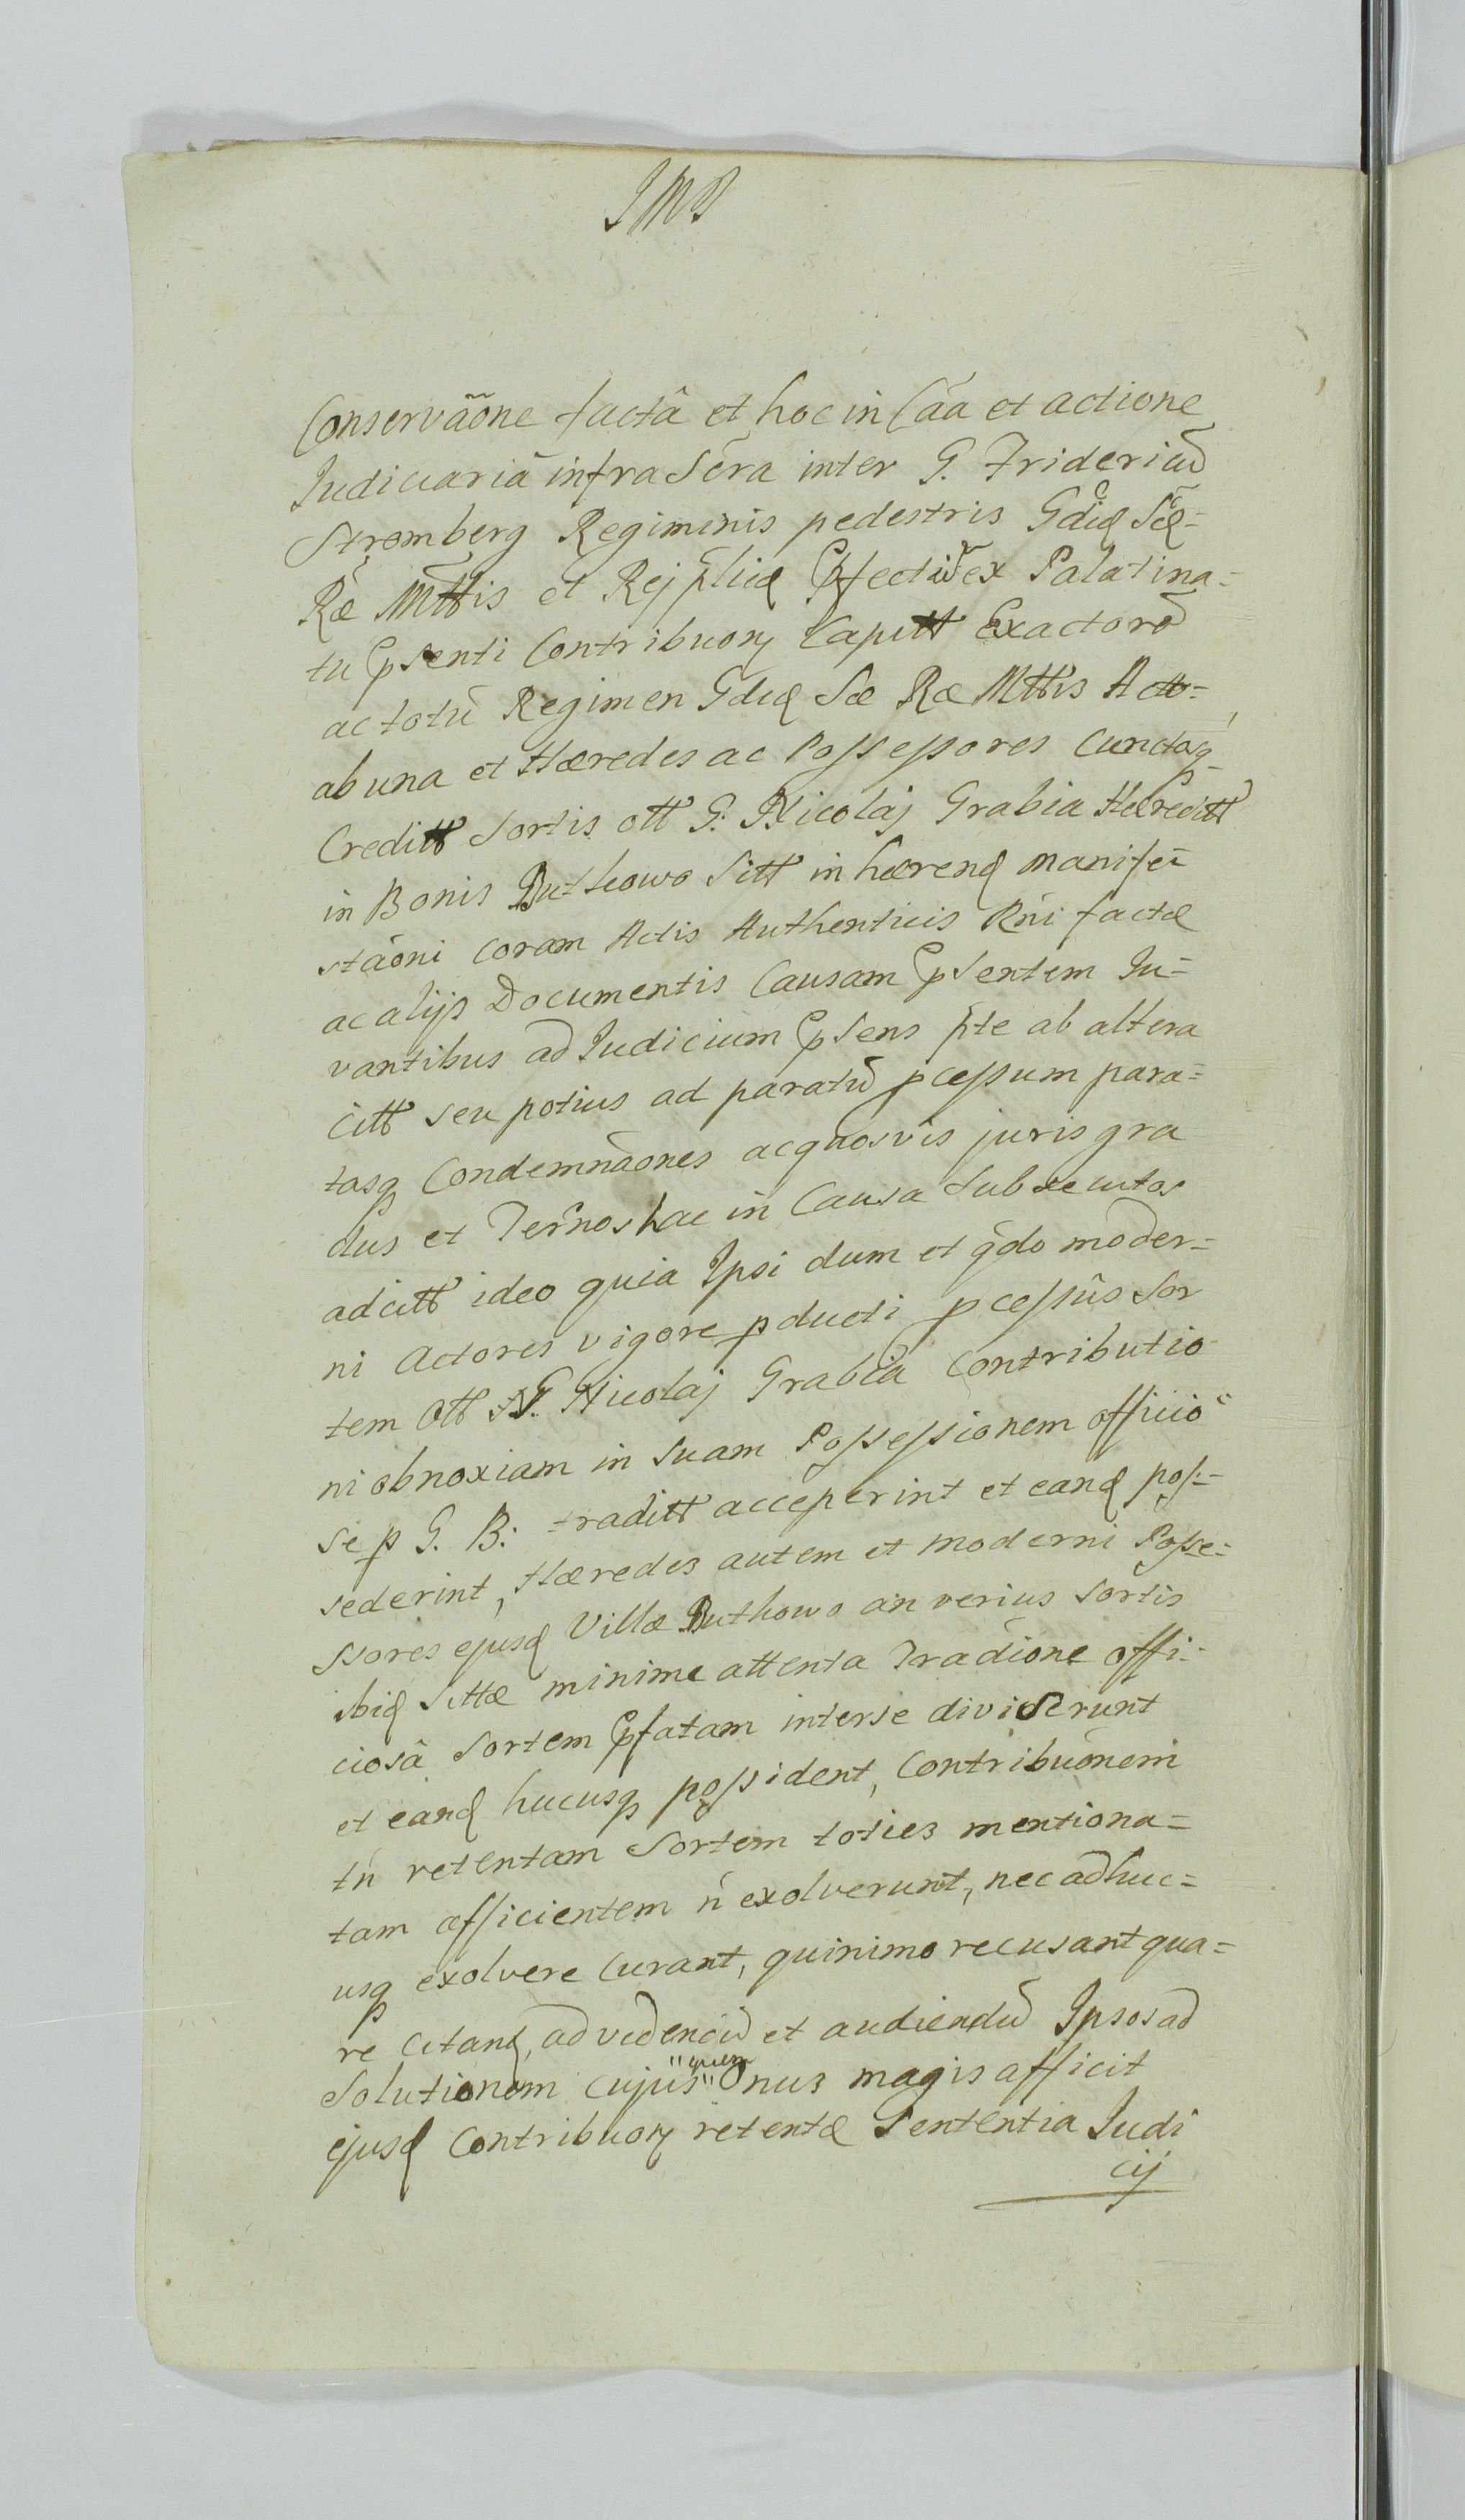 JMB
Conservãone factâ et hoc in Cãa et actione
Judiciariâ infra Scra inter G. Fridericũ
Stromberg Regiminis pedestris Gdiæ Sæ=
Ræ Mttis et Rejpłicæ Pfectũ ex Palatina=
tu Psenti Contribuony Capitt Exactorẽ
ac totũ Regimen Gdiæ Sæ Ræ Mttis Acto=
ab una et Hæredes ac Possessores Cunctosq
Creditt Sortis ott G. Nicolaj Grabia Hæreditt
in Bonis Buthowo Sitt inhærend manife=
stãoni coram Actis Authenticis Rńi factæ
ac alijs Documentis Causam Psentem Ju=
vantibus ad Judicium Psens pte ab altera
Citt seu potius ad paratũ pcessum para=
tasq Condemnãones ac quosvis juris gra
dus et Termos hac in Causa subsecutos
adcitt ideo quia Ipsi dum et qdo moder=
ni Actores vigore pducti pcessûs Sor
tem Ott G. Nicolaj Grabia Contributio
ni obnoxiam in suam Possessionem officio
se p G. B: traditt acceperint et eand pos=
sederint, Hæredes autem et moderni Posse=
ssores ejusd Villæ Buthowo an verius Sortis
ibid Sittæ minime attenta Tradione offi=
ciosâ Sortem Pfatam inter se diviserunt
et eand hucusq possident, Contribuonem
tń retentam Sortem toties mentiona=
tam afficientem ń exolverunt, nec adhuc=
usq exolvere curant, quinimo recusant qua=
re citand, ad videndũ et audiendũ Ipsos ad
Solutionem Cujus "quem" Onus magis afficit
ejusd Contribuony retentæ Sententia Judi
cij